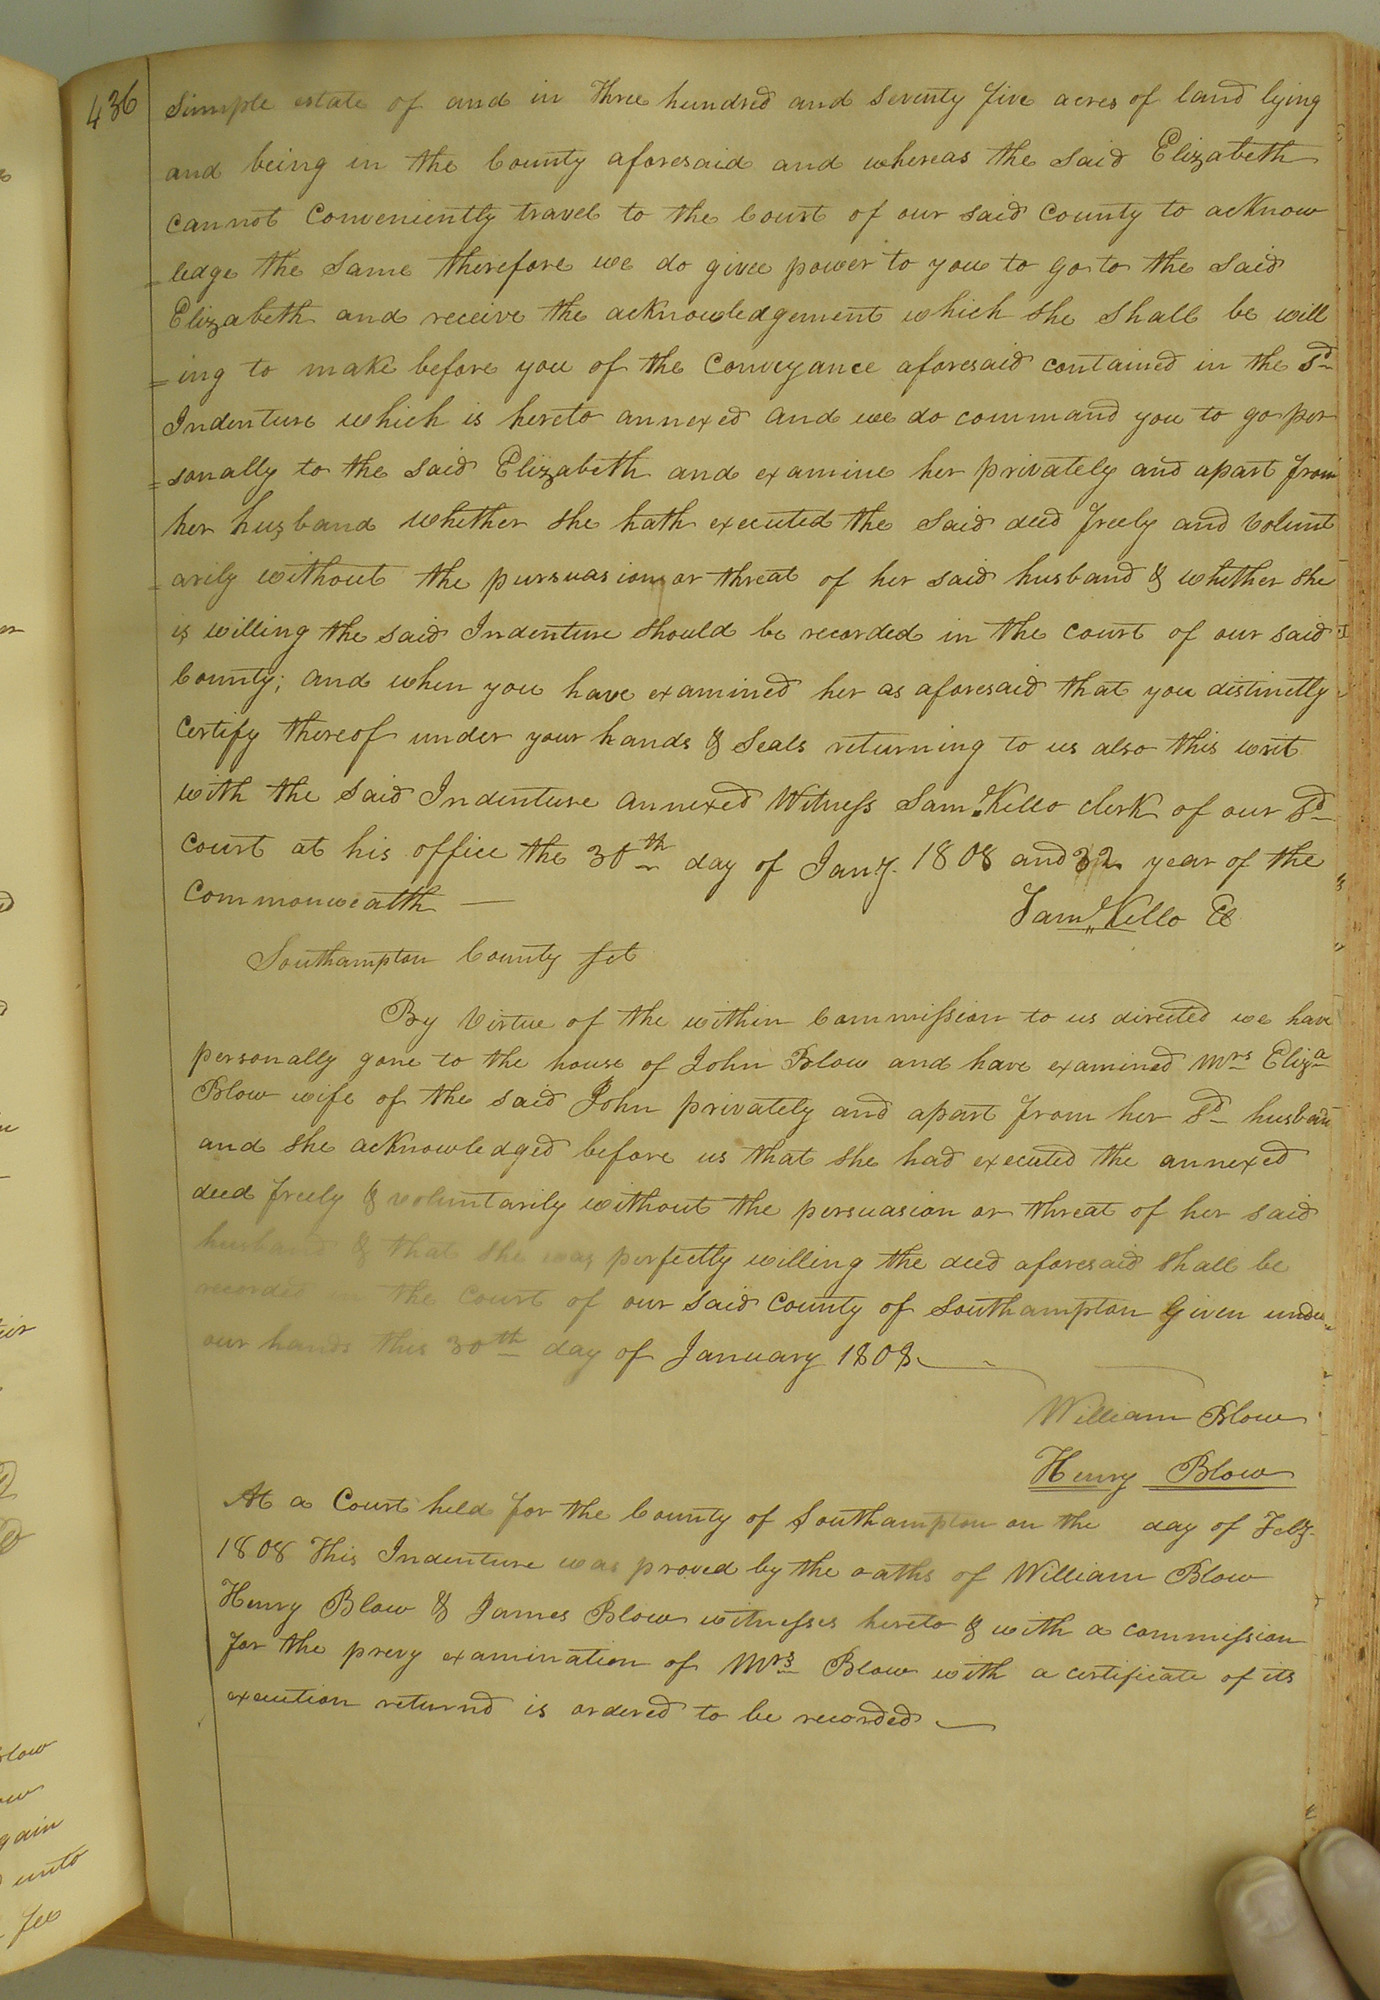 436
Simple estate of and in Three hundred and Seventy five acres of land lying
and being in the County aforesaid and whereas the said Elizabeth
cannot Conveniently travel to the Court of our said County to acknow
=ledge the Same therefore we do give power to you to go to the said
Elizabeth and receive the acknowledgement which she shall be will
=ing to make before you of the Conveyance aforesaid contained in the sd
Indenture which is hereto annexed and we do command you to go per
=sonally to the said Elizabeth and examine her privately and apart from
her husband whether she hath executed the said deed freely and Volunt
=arily without the pursuasion or threat of her said husband & whether she
is willing the said Indenture should be recorded in the court of our said
County; and when you have examined her as aforesaid that you distinctly
Certify thereof under your hands & Seals returning to us also this writ
with the said Indenture annexed Witness Saml. Kello clerk of our sd
court at his office the 30th day of Jany. 1808 and 32 year of the
Commonwealth —
Saml. Kello Cl
Southampton County sct
By Virtue of the within Commission to us directed we have
personally gone to the house of John Blow and have examined Mrs Eliza
Blow wife of the said John privately and apart from her sd husband
and she acknowledged before us that she had executed the annexed
deed freely & voluntarily without the persuasion or threat of her said
husband & that she was perfectly willing the deed aforesaid shall be
recorded in the Court of our said County of Southampton Given under
our hands this 30th day of January 1808
William Blow
Henry Blow
At a Court held for the County of Southampton on the day of Feby.
1808 This Indenture was proved by the oaths of William Blow
Henry Blow & James Blow witnesses hereto & with a commission
for the prevy examination of Mrs Blow with a certificate of its
execution returnd is ordered to be recorded —
blow
gain
unto
fee